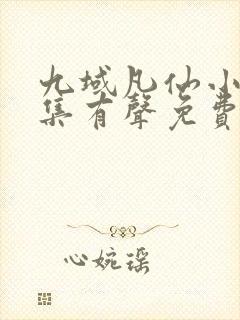 九域凡仙小
集有聲免費
心婉瑶